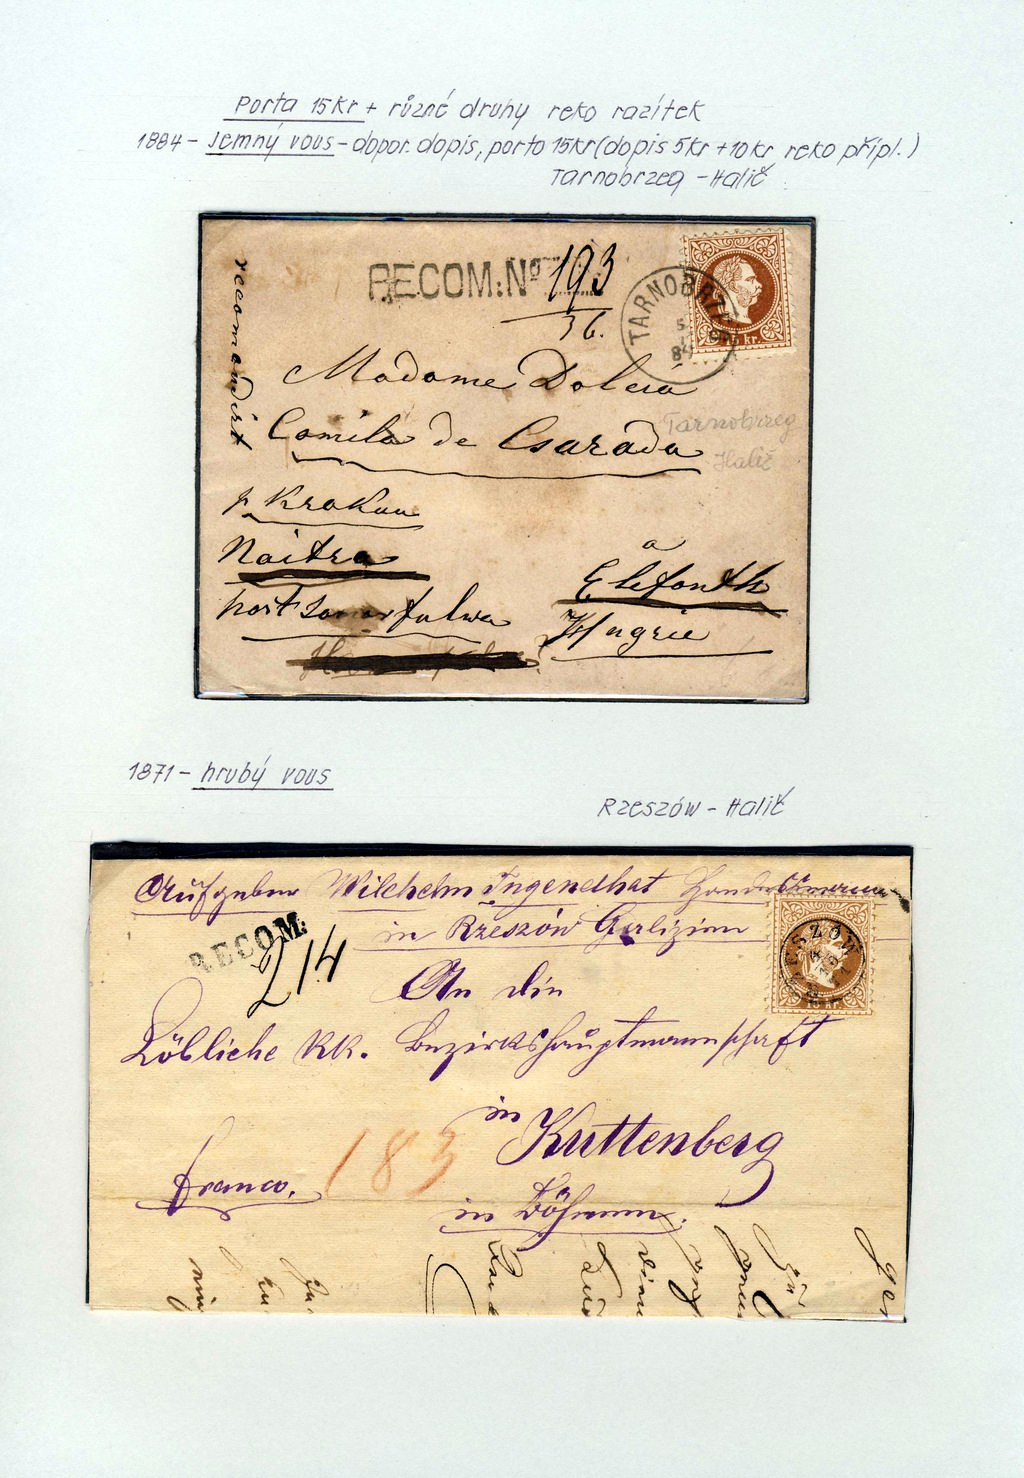 Porta 15kr + různé druhy reko razítek
1884 - Jemný vous - dopor. dopis, porto 15kr (dopis 5kr + 10kr reko přípl.)
Tarnobrzeg - Halič
recomandirt
RECOM: No 193
36.
TARNOBRZEG
5
84
15 kr.
Madame Dolcsa
Camila de Csarada
Tarnobrzeg
Halič
p Krakau
Naitra
a
Elefanth
post
Hngrie
1871 - hrubý vous
Rzeszów - Halič
Aufgeber Wilchelm Tugendhat
in Rzeszów Galizien
RECOM:
214
RZESZÓW
71
15 kr.
An die
Löbliche kk. Bezirkshauptmannschaft
in Kuttenberg
183
franco.
in Böhmen.